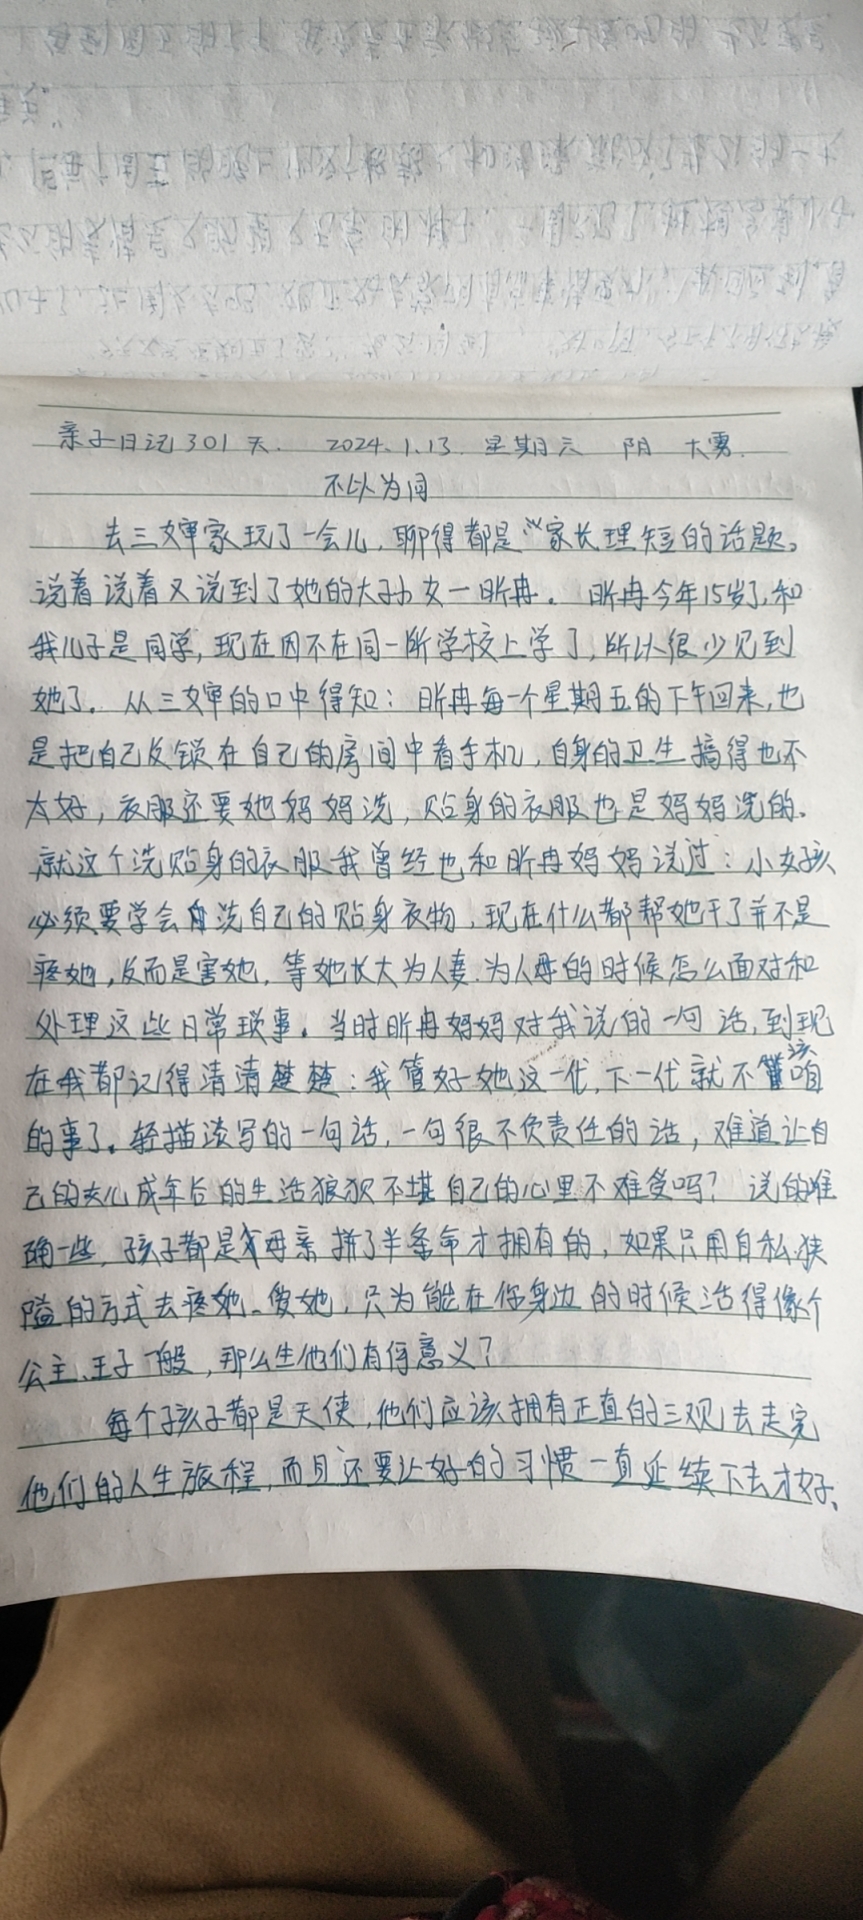 亲子日记301天. 2024.1.13. 星期六 阴 大雾.
不以为同
去三婶家玩了一会儿,聊得都是"家长理短的话题。
说着说着又说到了她的大孙女一昕冉。昕冉今年15岁了,和
我儿子是同学,现在因不在同一所学校上学了,所以很少见到
她了。从三婶的口中得知:昕冉每一个星期五的下午回来,也
是把自己反锁在自己的房间中看手机,自身的卫生搞得也不
太好,衣服还要她妈妈洗,贴身的衣服也是妈妈洗的。
就这个洗贴身的衣服我曾经也和昕冉妈妈说过:小女孩
必须要学会自洗自己的贴身衣物,现在什么都帮她干了并不是
疼她,反而是害她,等她长大为人妻.为人母的时候怎么面对和
处理这些日常琐事。当时昕冉妈妈对我说的一句话,到现
在我都记得清清楚楚:我管好她这一代,下一代就不该咱
的事了。轻描淡写的一句话,一句很不负责任的话,难道让自
己的女儿成年后的生活狼狈不堪自己的心里不难受吗?说的准
确一些,孩子都是母亲拼了半条命才拥有的,如果只用自私.狭
隘的方式去疼她、爱她,只为能在你身边的时候活得像个
公主、王子一般,那么生他们有何意义?
每个孩子都是天使,他们应该拥有正直的三观去走完
他们的人生旅程,而且还要让好的习惯一直延续下去才好。